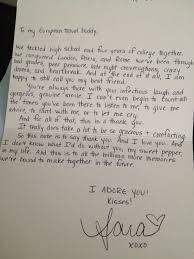 To my European Travel Buddy,
We tackled high school and five years of college together,
we conquered London, Paris, and Rome. We've been through
bad grades, peer pressure, late night choreographing, crazy
moms, and heartbreak. And at the end of it all, I am
happy to still call you my best friend.
You're always there with you infectious laugh and
gorgeous, genuine smile. I can't even begin to count all
the times you've been there to listen to me, to give me
advice, to chat with me, or to let me cry.
And for all of that, this is a thank you.
It really does take a lot to be so gracious & comforting
So this note is to say thank you. And I love you. And
I don't know what I'd do without you, my sweet pepper,
in my life. And this is to all the trillions more memories
we're bound to make together in the future.
I ADORE YOU!
Kisses!
Sara
XOXO